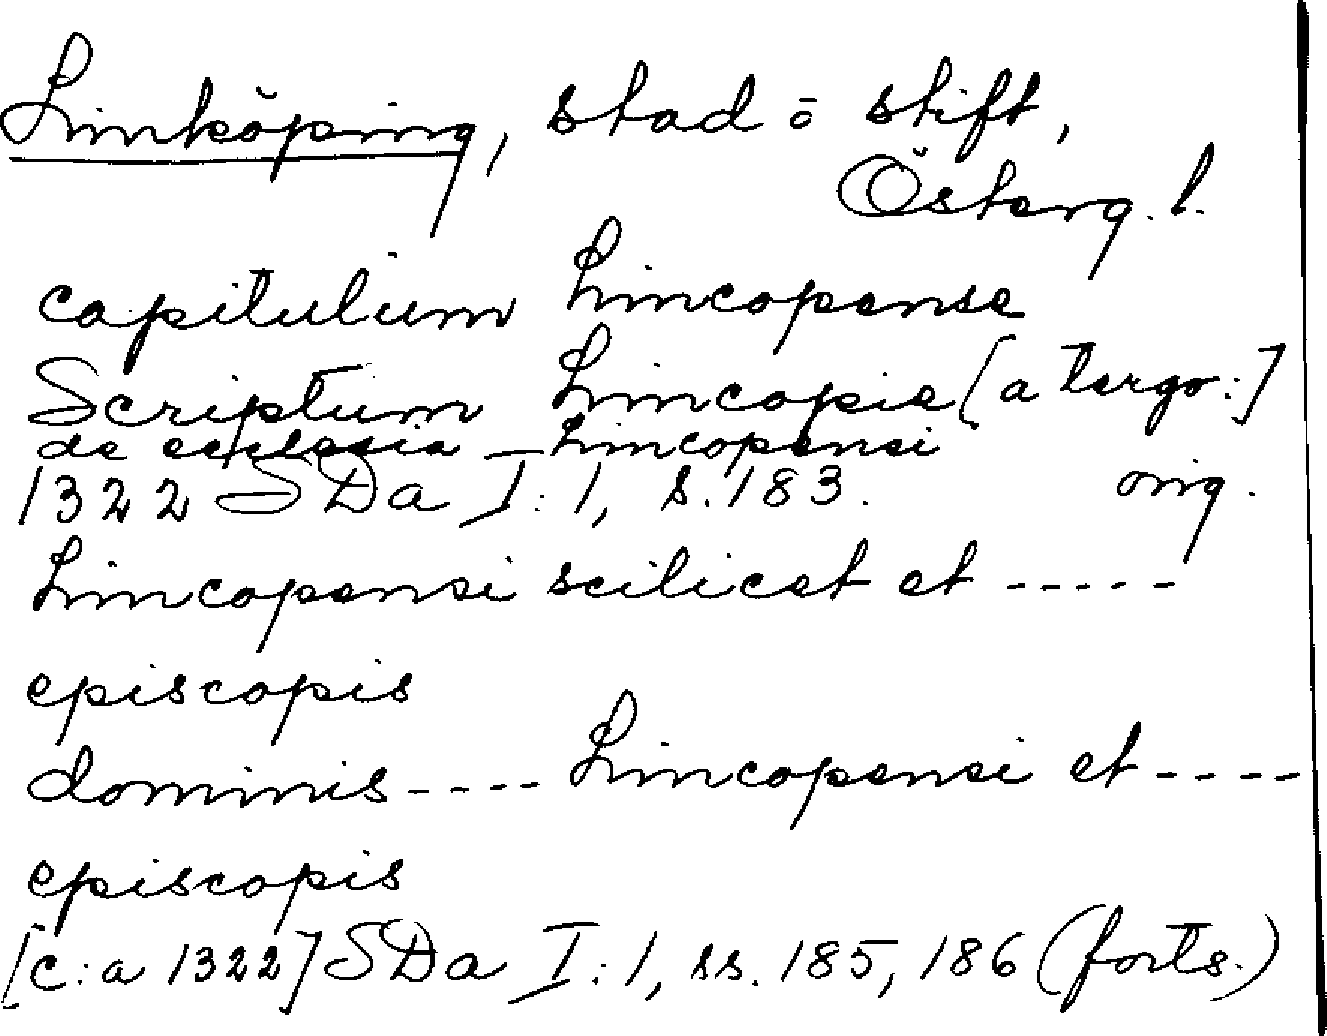 Linköping, stad o stift,
Österg. l.
capitulum Lincopense
Scriptum Lincopie [a tergo:]
de ecclesia Lincopensi
1322 SDa I:1, s. 183. orig.
Lincopensi scilicet et -----
episcopis
dominis ---- Lincopensi et ----
episcopis
[c:a 1322] SDa I:1, ss. 185, 186 (forts.)